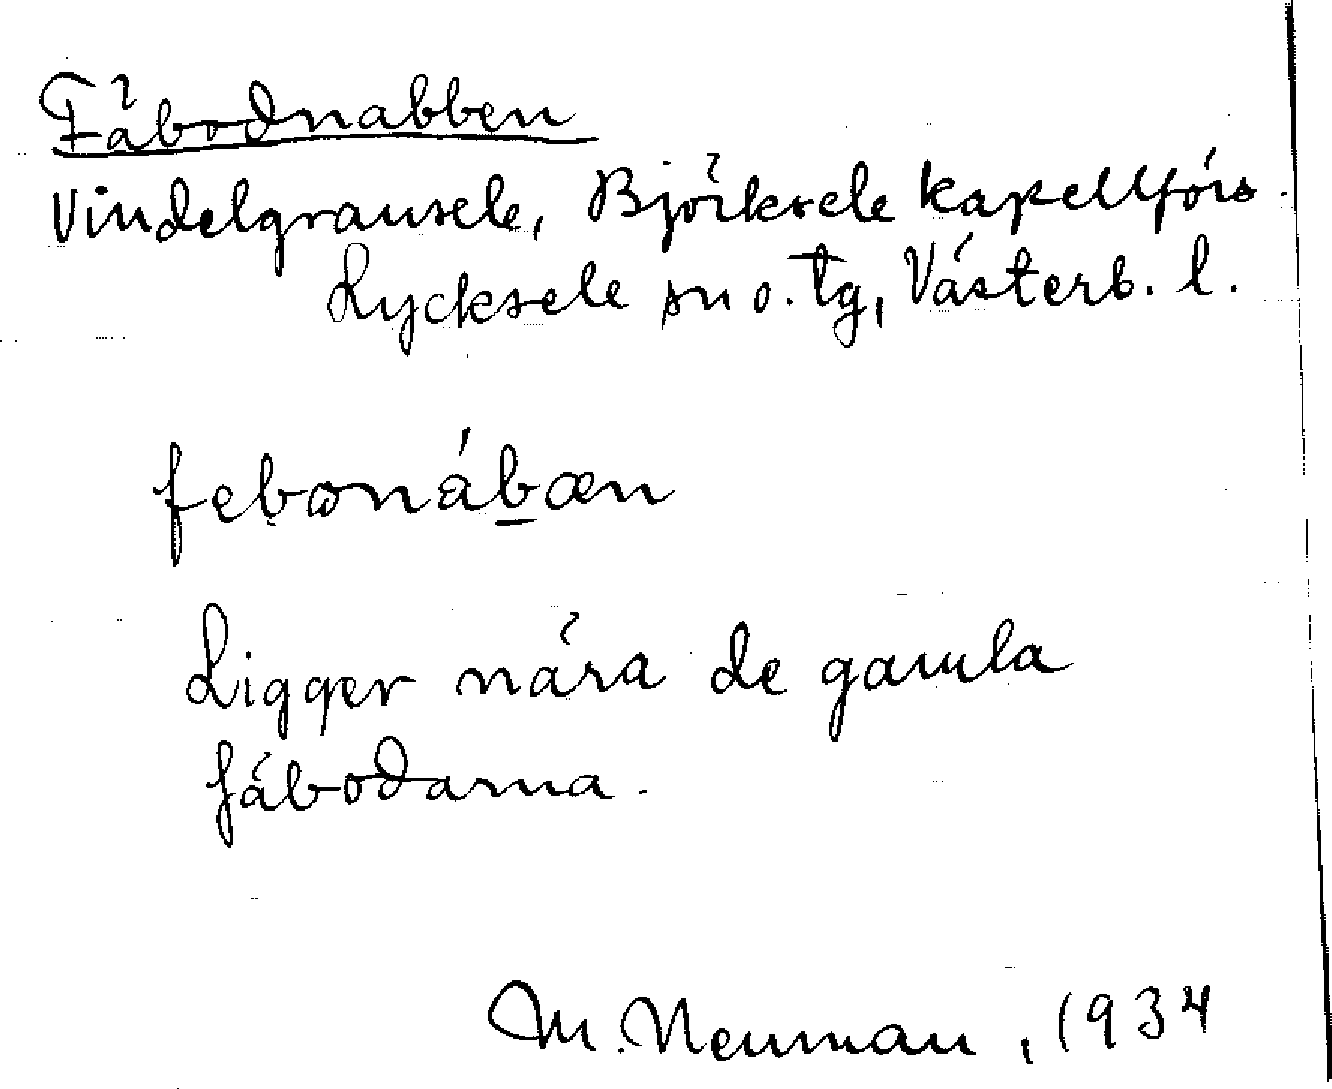 Fäbodnabben
Vindelgransele, Björksele kapellförs.
Lycksele sn o. tg, Västerb. l.
febonáben
Ligger nära de gamla
fäbodarna.
M. Neuman, 1934